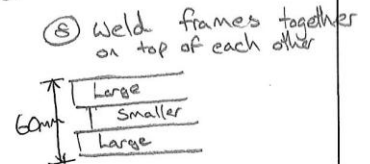 ⑧ Weld frames together
on top of each other
Large
60mm Smaller
Large